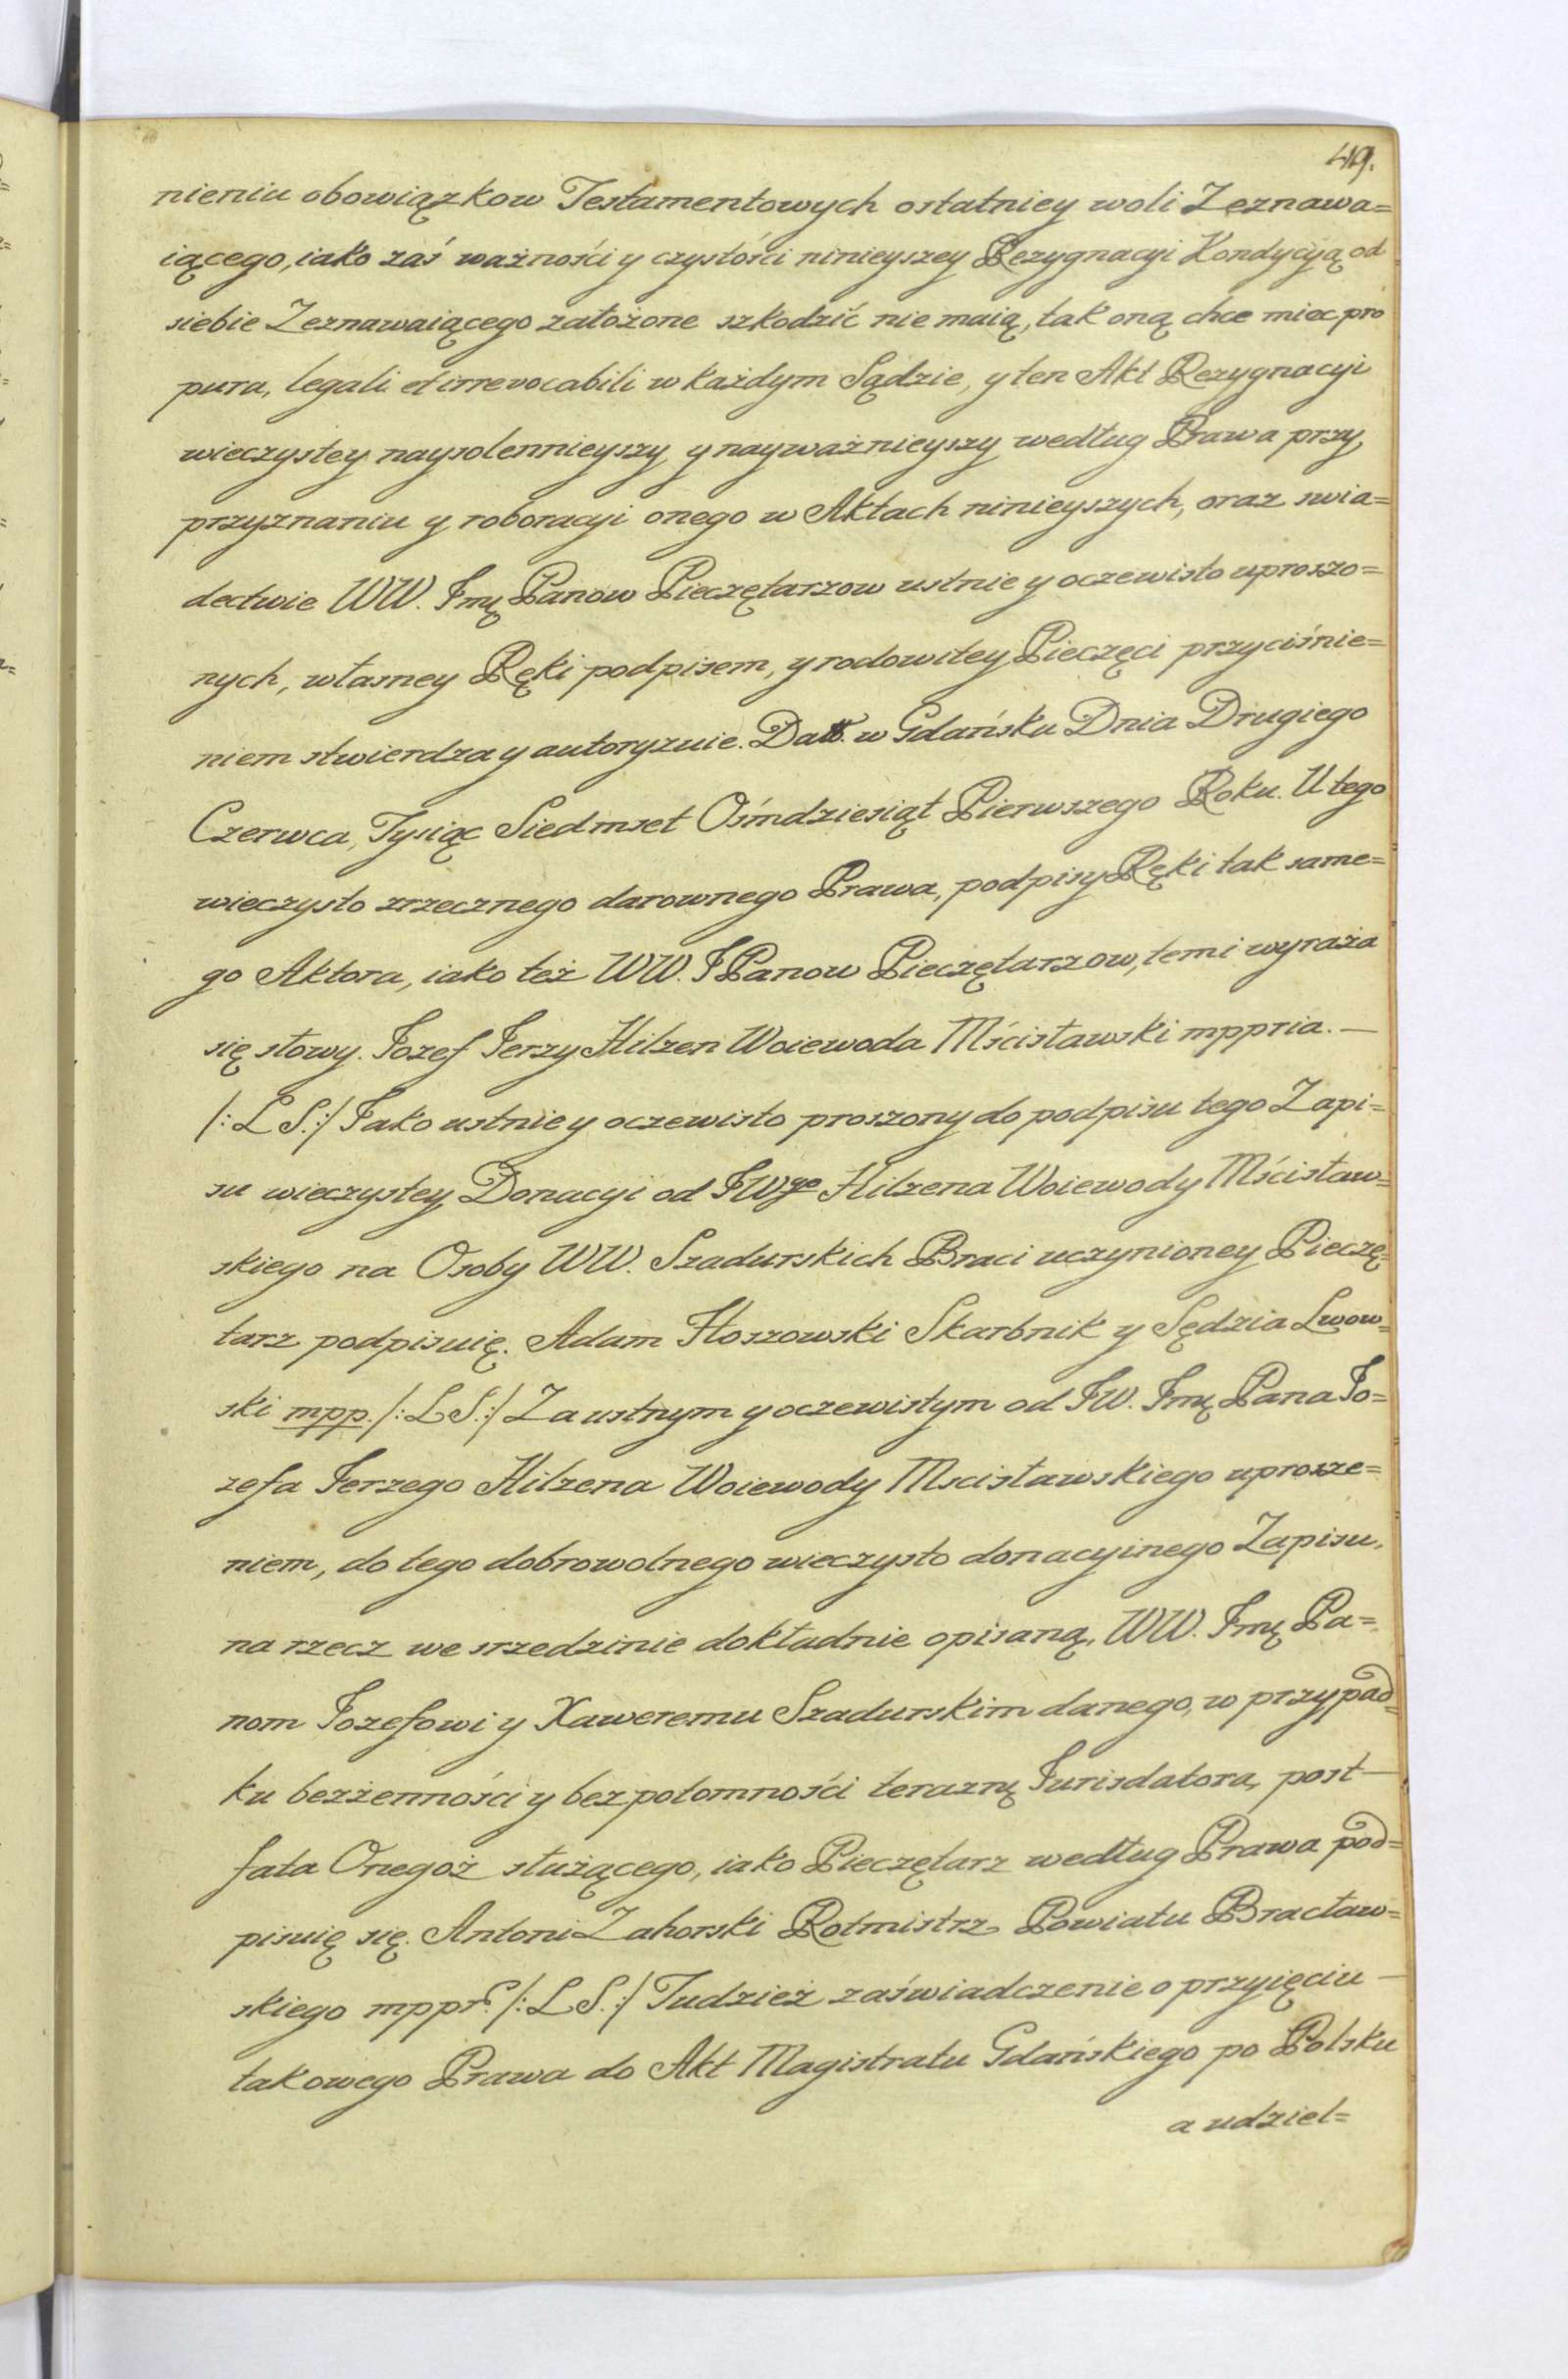 419.
nieniu obowiązkow Testamentowych ostatniey woli Zeznawa=
iącego, iako zaś ważności y czystości ninieyszey Rezygnacyi Kondycyią od
siebie Zeznawaiącego założone szkodzić nie maią, tak oną chce miec pro
pura, legali et irrevocabili w każdym Sądzie, y ten Akt Rezygnacyi
wieczystey naysolennieyszy y nayważnieyszy według Prawa przy
przyznaniu y roboracyi onego w Aktach ninieyszych, oraz swia=
dectwie WW. Jmę Panow Pieczętarzow ustnie y oczewisto uproszo=
nych, własney Ręki podpisem, y rodowitey Pieczęci przyciśnie=
niem stwierdza y autoryzuie. Datt. w Gdańsku Dnia Drugiego
Czerwca, Tysiąc Siedmset Ośmdziesiąt Pierwszego Roku. U tego
wieczysto zrzecznego darownego Prawa, podpisy Ręki tak same=
go Aktora, iako też WW. JPanow Pieczętarzow, temi wyraża
się słowy. Jozef Jerzy Hilzen Woiewoda Mścisławski mppria. —
/: L S.:/ Jako ustnie y oczewisto proszony do podpisu tego Zapi=
su wieczystey Donacyi od JWgo Hilzena Woiewody Mścisław=
skiego na Osoby WW. Szadurskich Braci uczynioney Pieczę=
tarz podpisuię. Adam Hoszowski Skarbnik y Sędzia Lwow=
ski mpp. /: L S.:/ Za ustnym y oczewistym od JW. Jmę Pana Jo=
zefa Jerzego Hilzena Woiewody Mscisławskiego uprosze=
niem, do tego dobrowolnego wieczysto donacyinego Zapisu,
na rzecz we srzedzinie dokładnie opisaną, WW. Jmę Pa=
nom Jozefowi y Xaweremu Szadurskim danego, w przypad=
ku bezżenności y bezpotomności teraznę Jurisdatora, post —
fata Onegoż służącego, iako Pieczętarz według Prawa pod=
pisuię się. Antoni Zahorski Rotmistrz Powiatu Bracław=
skiego mppr. /: L S.:/ Tudzież zaświadczenie o przyięciu —
takowego Prawa do Akt Magistratu Gdańskiego po Polsku
a udziel=